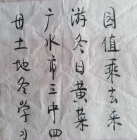 值乘去来
游冬日黄
广水市三中四
土地冬学习